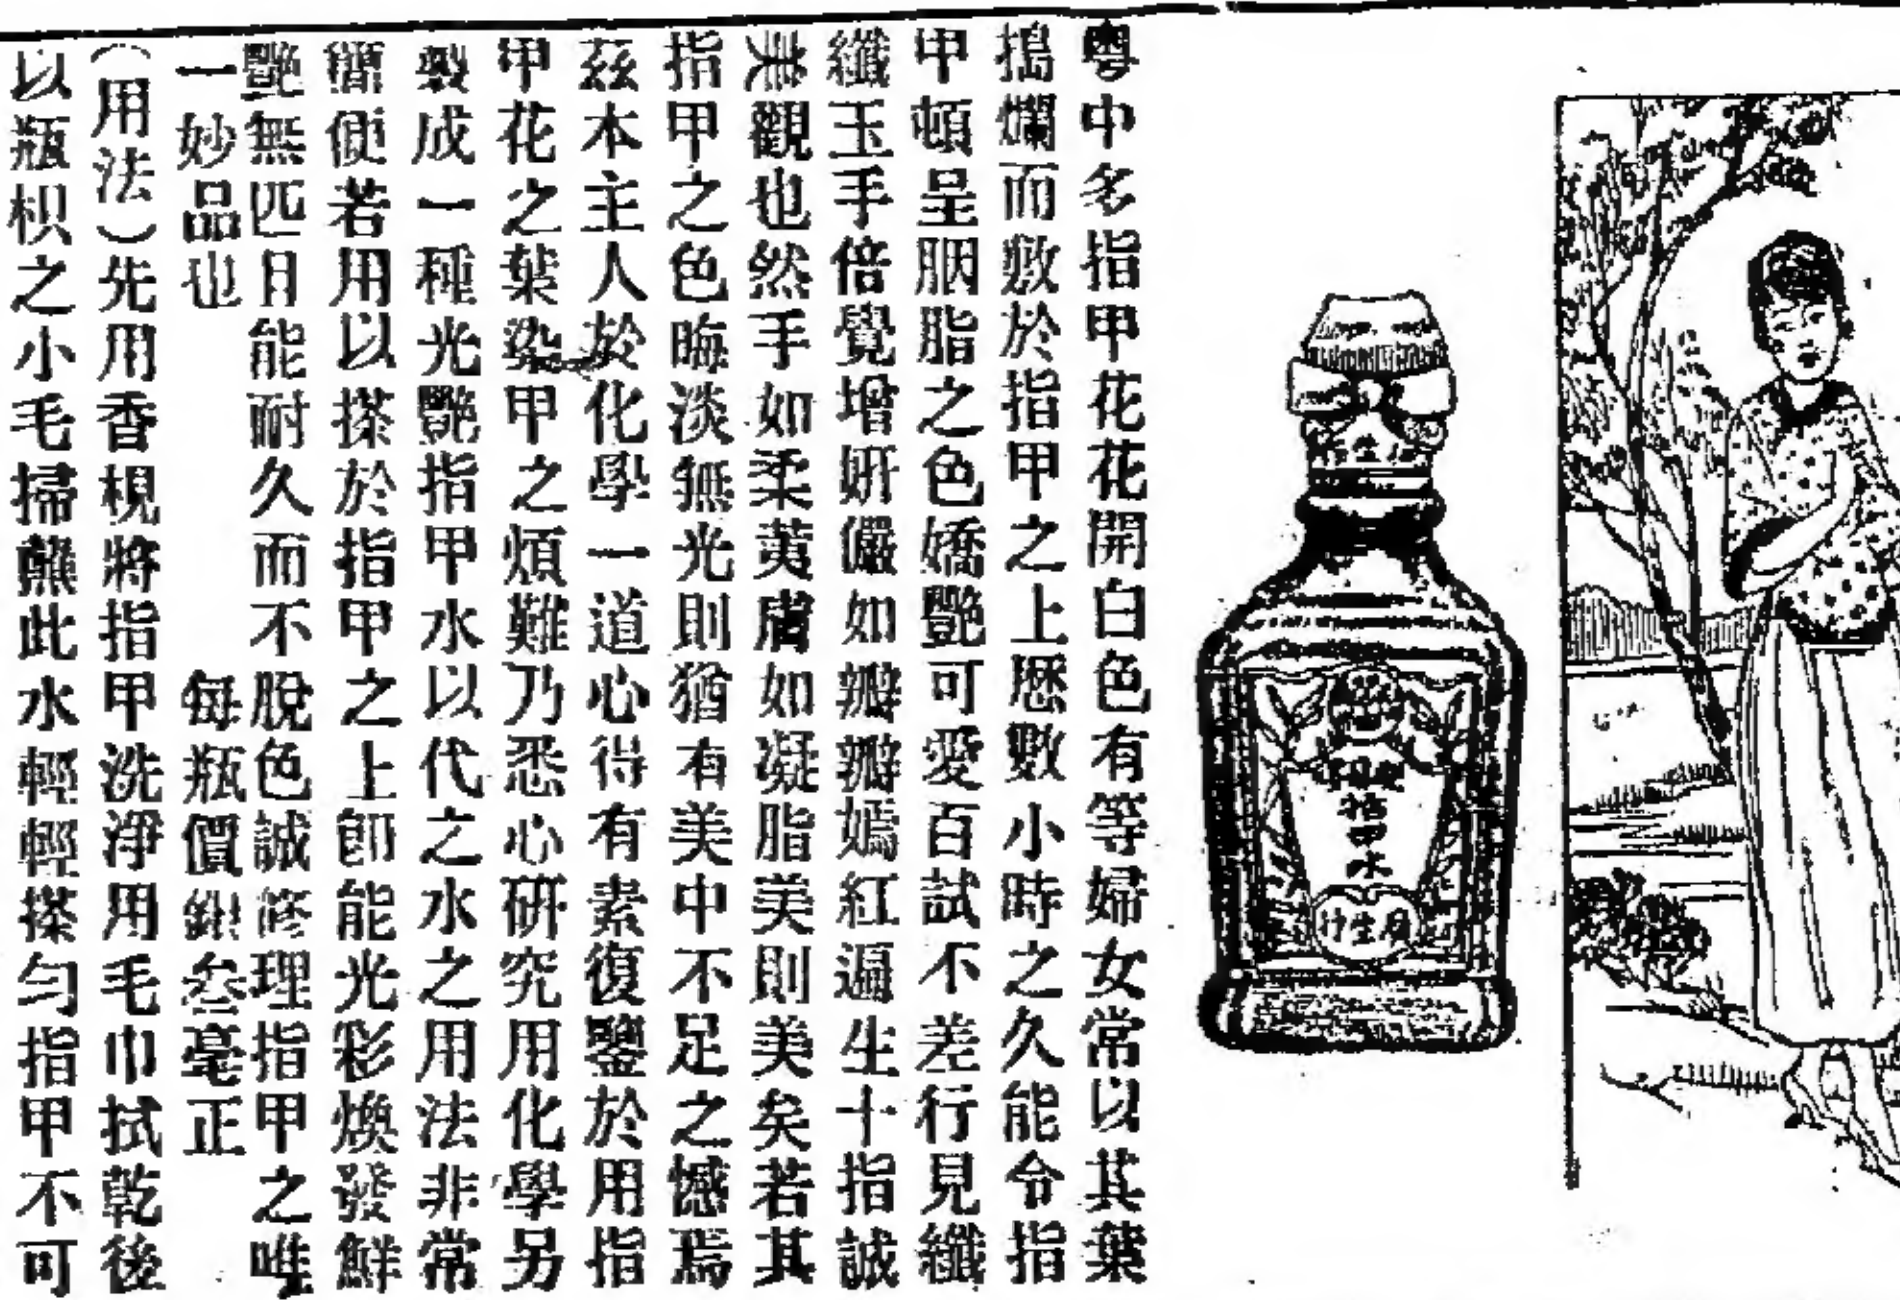 粤中名指甲花花開白色有等婦女常以其葉
搗爛而敷於指甲之上歷數小時之久能令指
甲頓呈胭脂之色嬌艷可愛百試不差行見纖
纖玉手倍覺增妍儼如瓣瓣嫣紅遍生十指誠
美觀也然手如柔荑膚如凝脂美則美矣若其
指甲之色晦淡無光則猶有美中不足之憾焉
茲本主人於化學一道心得有素復鑒於用指
甲花之葉染甲之煩難乃悉心研究用化學另
製成一種光艷指甲水以代之水之用法非常
簡便若用以搽於指甲之上即能光彩煥發鮮
艷無匹且能耐久而不脫色誠修理指甲之唯
一妙品也 每瓶價銀叁毫正
（用法）先用香梘將指甲洗淨用毛巾拭乾後
以瓶枳之小毛掃蘸此水輕輕搽勻指甲不可
指甲水
廣生行